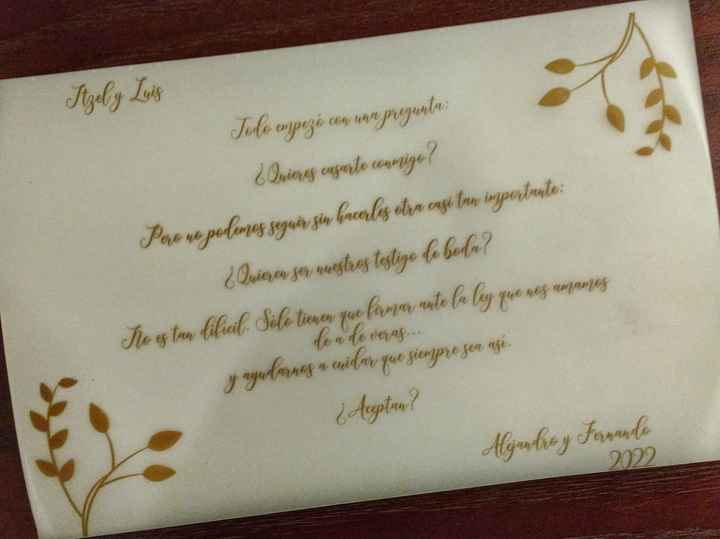 Itzel y Luis
Todo empezó con una pregunta:
¿Quieres casarte conmigo?
Pero no podemos seguir sin hacerles otra casi tan importante:
¿Quieren ser nuestros testigo de boda?
No es tan dificil. Sólo tienen que firmar ante la ley que nos amamos
de a de veras...
y ayudarnos a cuidar que siempre sea así.
¿Aceptan?
Alejandro y Fernando
2022